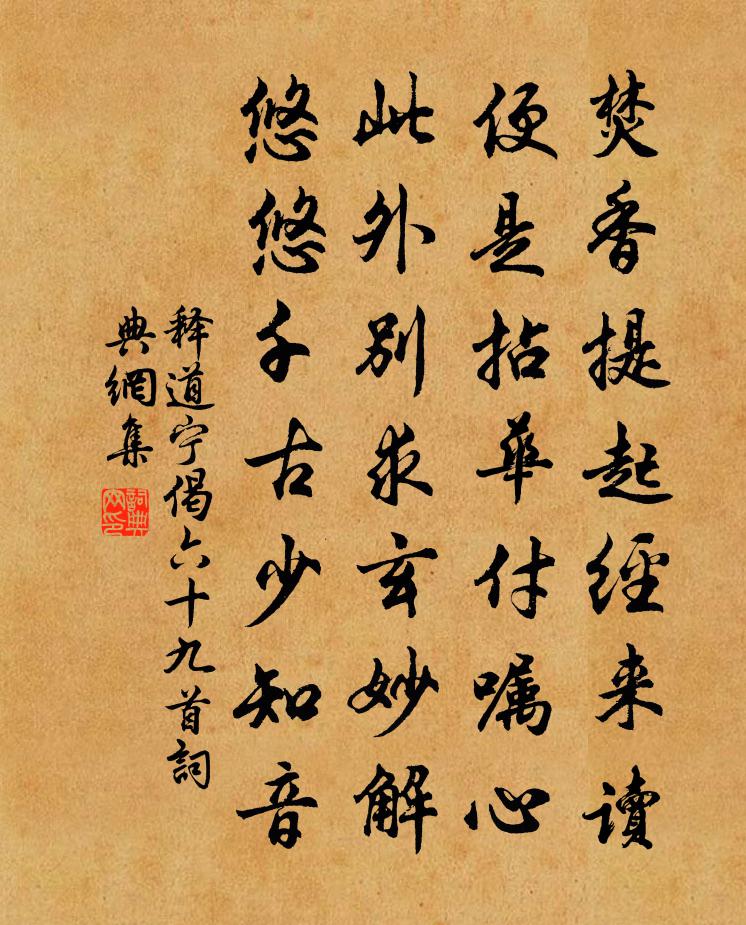 焚香提起經来讀
便是拈華付嘱心
此外别求玄妙解
悠悠千古少知音
释道宁偈六十九首詞
典網集
詞典
网印